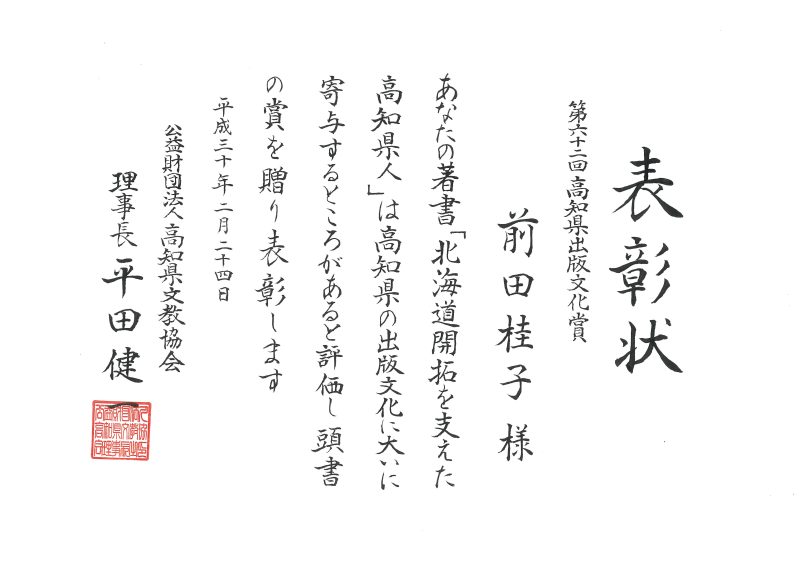 表彰状
第六十二回高知県出版文化賞
前田桂子様
あなたの著書「北海道開拓を支えた
高知県人」は高知県の出版文化に大いに
寄与するところがあると評価し頭書
の賞を贈り表彰します
平成三十年二月二十四日
公益財団法人高知県文教協会
理事長平田健一